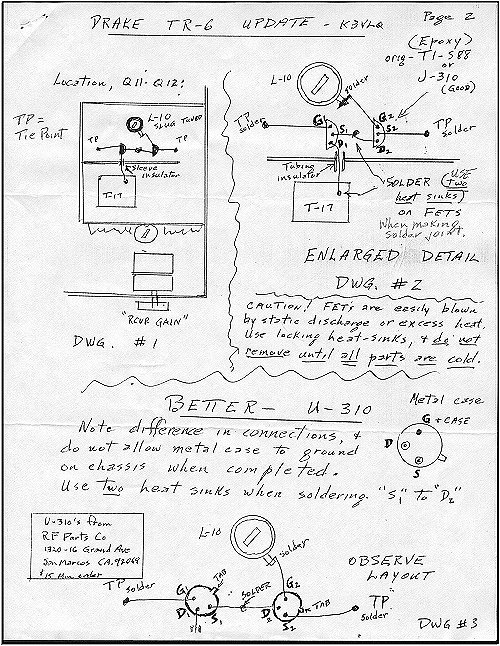 DRAKE TR-6 UPDATE - K3VLQ
Page 2
(Epoxy)
orig - TI-S88
or
J-310
(GOOD)
Location, Q11-Q12:
TP =
Tie Point
L-10
SLUG TUNED
TP
TP
sleeve
insulator
T-17
A
"RCVR GAIN"
DWG. #1
L-10
solder
TP
solder
G1
S1
D1
G2
S2
D2
TP
solder
Tubing
insulator
T-17
SOLDER (USE
TWO
heat sinks)
on FETS
When making
solder joint.
ENLARGED DETAIL
DWG. #2
CAUTION! FETs are easily blown
by static discharge or excess heat.
Use locking heat-sinks, & do not
remove until all parts are cold.
BETTER - U-310
Note difference in connections, &
do not allow metal case to ground
on chassis when completed.
Use Two heat sinks when soldering "S1" to "D2"
Metal case
G + CASE
D
S
U-310's from
RF Parts Co
1320-16 Grand Ave
San Marcos CA. 92069
$15 Min order
L-10
solder
OBSERVE
LAYOUT
TP
solder
G1
TAB
D1
S1
SOLDER
G2
D2
S2
TAB
TP
solder
DWG #3